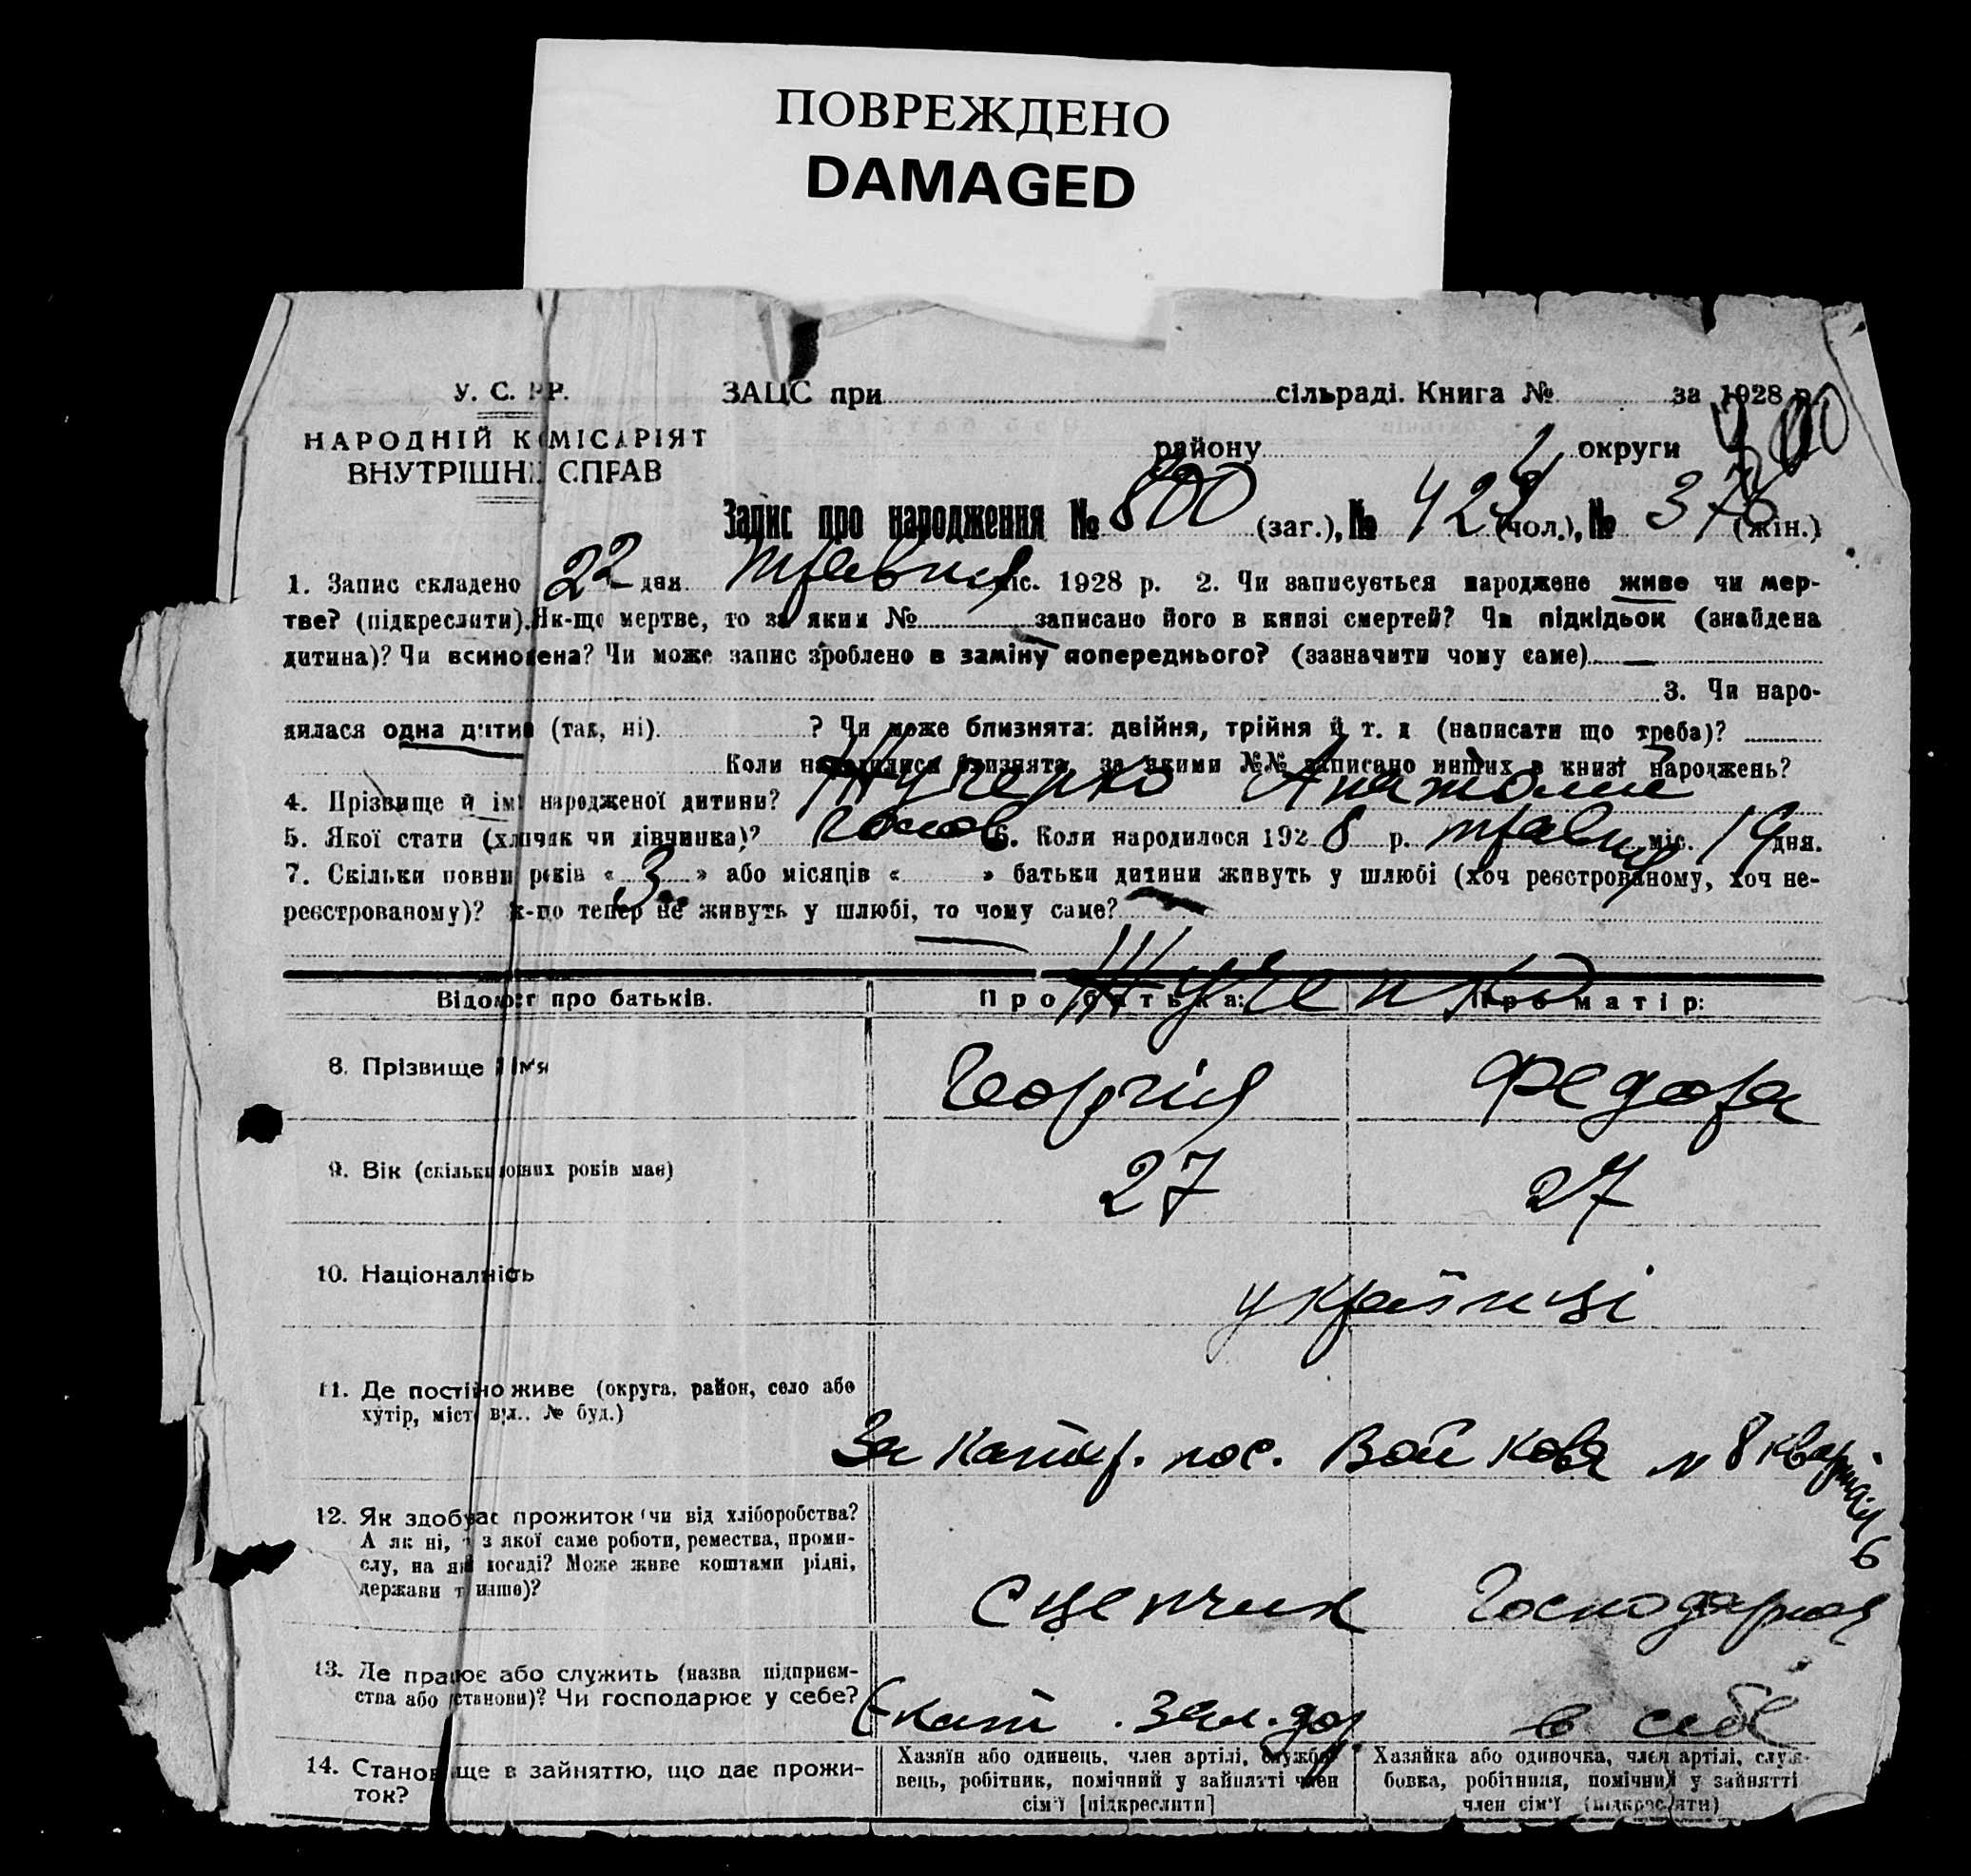 ПОВРЕЖДЕНО
DAMAGED
У. С. Р.Р. ЗАЦС при сільраді. Книга № за 1928 р.
НАРОДНІЙ КОМІСАРІЯТ
ВНУТРІШНІХ СПРАВ
району округи
Запис про народження № 800 (заг.), № 424 (чол.), № 376 (жін.)
1. Запис складено 22 дня травня міс. 1928 р. 2. Чи записується народжене живе чи мер-
тве? (підкреслити). Як-що мертве, то за яким № записано його в книзі смертей? Чи підкідьок (знайдена
дитина)? Чи всиновлена? Чи може запис зроблено в заміну попереднього? (зазначити чому саме)
3. Чи наро-
дилася одна дитина (так, ні). ? Чи може близнята: двійня, трійня й т. д (написати що треба)?
Коли народилися близнята, за якими №№ записано инших в книзі народжень?
4. Прізвище й імя народженої дитини? Жученко Анатолий
5. Якої стати (хлопчяк чи дівчинка)? 6. Коли народилося 1928 р. травня міс. 19 дня.
7. Скільки повних років « 3 » або місяців « » батьки дитини живуть у шлюбі (хоч реєстрованому, хоч не-
реєстрованому)? Як-що тепер не живуть у шлюбі, то чому саме?
Жученко
Відомости про батьків. Про батька: Про матір:
8. Прізвище й імя Георгій Федора
9. Вік (скільки повних років має) 27 27
10. Національність українці
11. Де постійно живе (округа, район, село або
хутір, місто вул.. № буд.)
пос. Войкова № 8 квартал
6
12. Як здобуває прожиток (чи від хліборобства?
А як ні, то з якої саме роботи, ремества, проми-
слу, на якій посаді? Може живе коштами рідні,
держави то инше)?
Сцепчик Господарная
13. Де працює або служить (назва підприєм-
ства або установи)? Чи господарює у себе?
Екат. зал. дор. в себе
14. Становище в зайняттю, що дає прожи-
ток?
Хазяїн або одинець, член артілі, службо-
вець, робітник, помічний у зайнятті член
сім'ї [підкреслити]
Хазяйка або одиночка, член артілі, служ-
бовка, робітниця, помічний у зайнятті
член сім'ї (підкреслити)